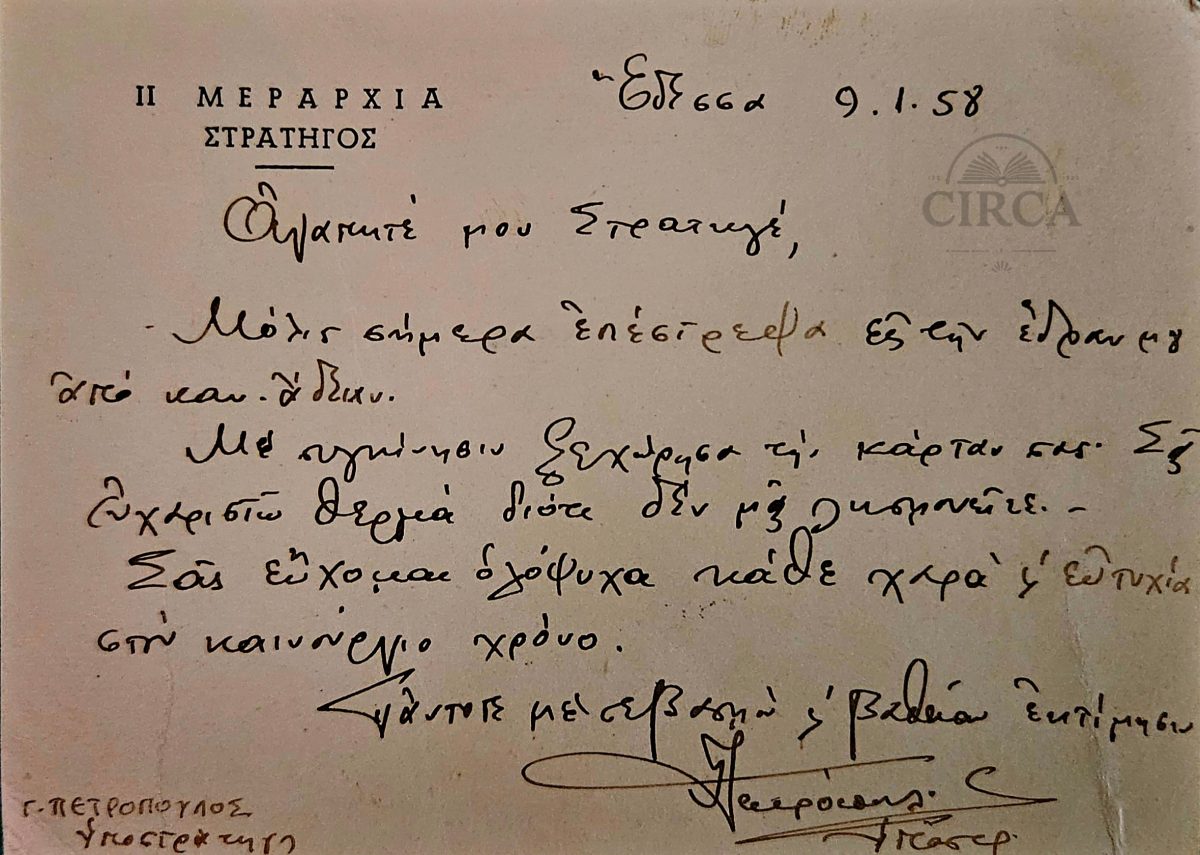 II ΜΕΡΑΡΧΙΑ
ΣΤΡΑΤΗΓΟΣ
Ἔδεσσα 9.1.58
CIRCA
Ἀγαπητέ μου Στρατηγέ,
Μόλις σήμερα ἐπέστρεψα εἰς τὴν ἕδραν μου
ἀπό καν. ἄδειαν.
Μέ συγκίνησιν ξεχώρησα τήν κάρταν σας. Σᾶς
εὐχαριστῶ θερμά διότι δέν μᾶς λησμονεῖτε. -
Σᾶς εὔχομαι ὁλόψυχα κάθε χαρά & εὐτυχία
στόν καινούργιο χρόνο.
Πάντοτε μέ σεβασμόν & βαθεῖαν ἐκτίμησιν
Γ. ΠΕΤΡΟΠΟΥΛΟΣ
Υποστράτηγος